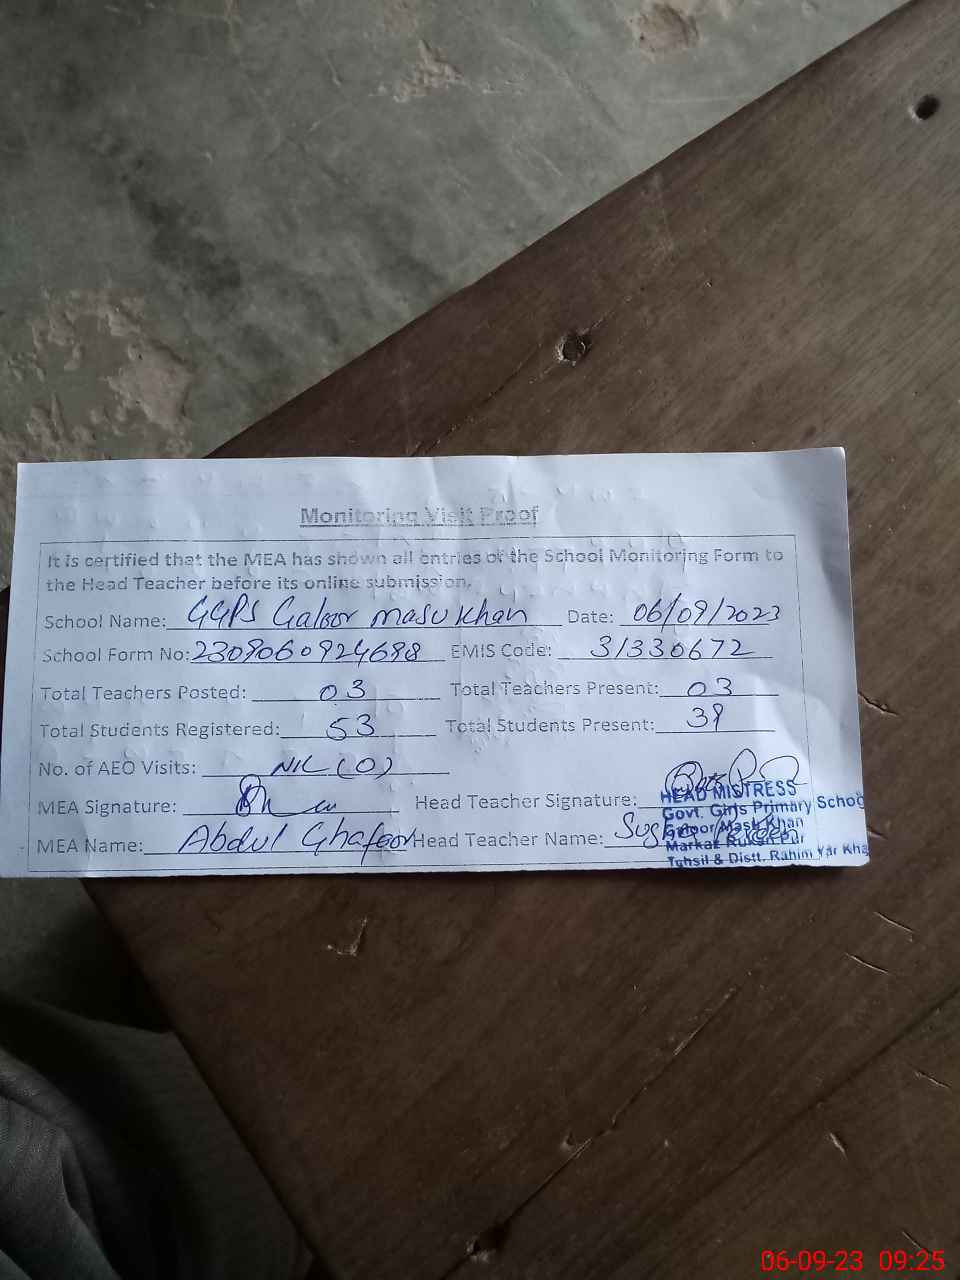 Monitoring Visit Proof
It is certified that the MEA has shown all entries of the School Monitoring Form to
the Head Teacher before its online submission.
School Name: GGPS Galoor masu Khan Date: 06/09/2023
School Form No: 2309060924698 EMIS Code: 31330672
Total Teachers Posted: 03 Total Teachers Present: 03
Total Students Registered: 53 Total Students Present: 39
No. of AEO Visits: NIL (0)
MEA Signature: Head Teacher Signature:
HEAD MISTRESS
Govt. Girls Primary School
Galoor Masu Khan
Markaz Rukan Pur
Tehsil & Distt. Rahim Yar Kha
MEA Name: Abdul Ghafoor Head Teacher Name:
06-09-23 09:25